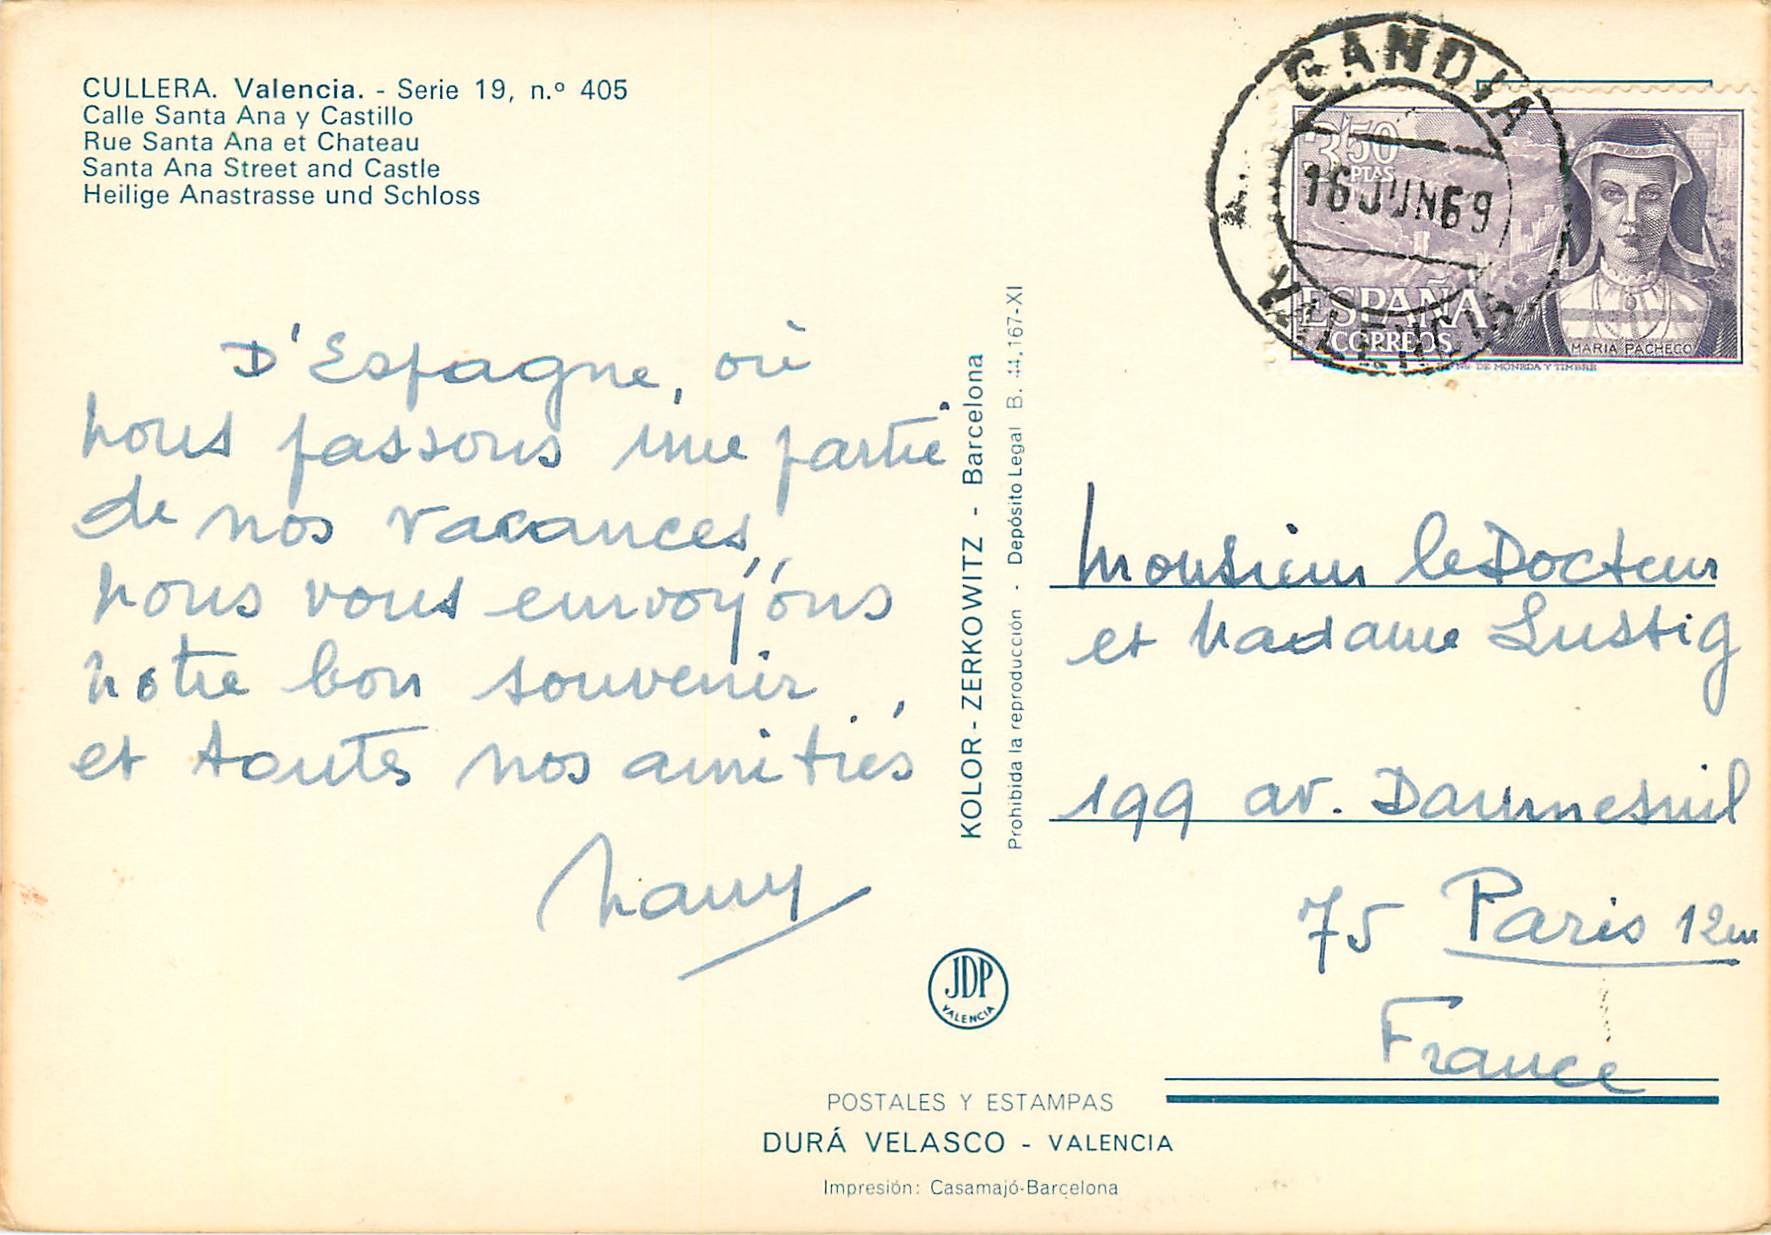 CULLERA. Valencia. - Serie 19, n.º 405
Calle Santa Ana y Castillo
Rue Santa Ana et Chateau
Santa Ana Street and Castle
Heilige Anastrasse und Schloss
GANDIA
16 JUN 69
VALENCIA
3'50
PTAS
ESPAÑA
CORREOS
MARIA PACHECO
DE MONEDA Y TIMBRE
D'Espagne, où
nous passons une partie
de nos vacances,
nous vous envoyons
notre bon souvenir
et toutes nos amitiés
KOLOR - ZERKOWITZ - Barcelona
Prohibida la reproducción - Depósito Legal B. 44.167-XI
Monsieur le Docteur
et Madame Lustig
199 av. Daumesnil
75 Paris 12em
France
JDP
VALENCIA
POSTALES Y ESTAMPAS
DURÁ VELASCO - VALENCIA
Impresión: Casamajó-Barcelona